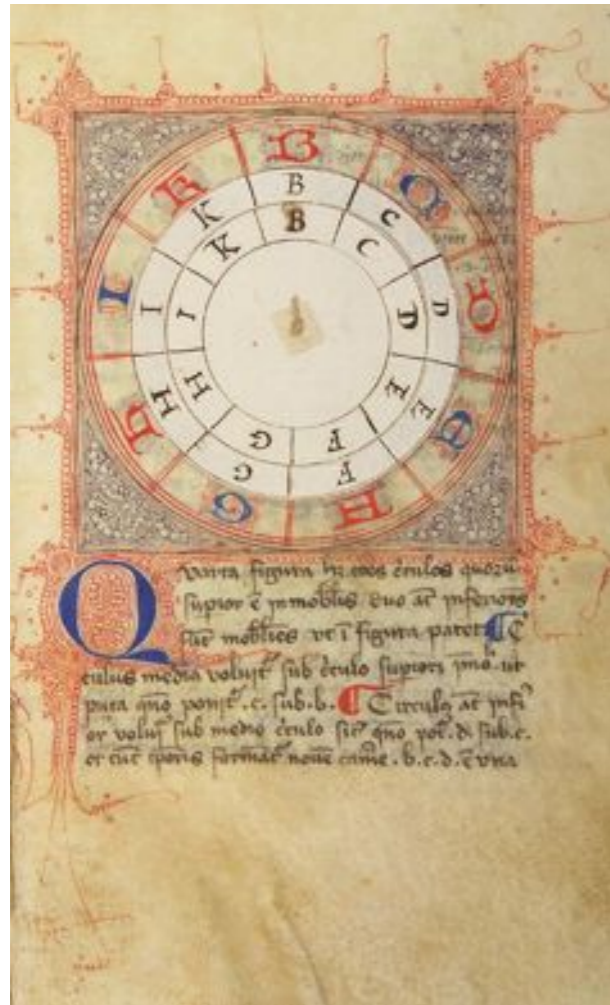 B C D E F G H I K
B C D E F G H I K
B C D E F G H I K
Quarta figura hꝫ tres circulos quorū
supior ē inmobilis duo aut inferiores
sūt mobiles vt ī figura patet ¶ Cir
culus mediꝰ voluit̃ sub circulo supiori imo. ut
puta qn̄o ponit̃ .c. sub .b. ¶ Circulus aūt infi
or volui᷒ sub medio circulo sic̃ qn̄o poı̃. d. sub .c.
et tūc tp̄oris formāt̃ nouē camē. b. c. d. ē vna